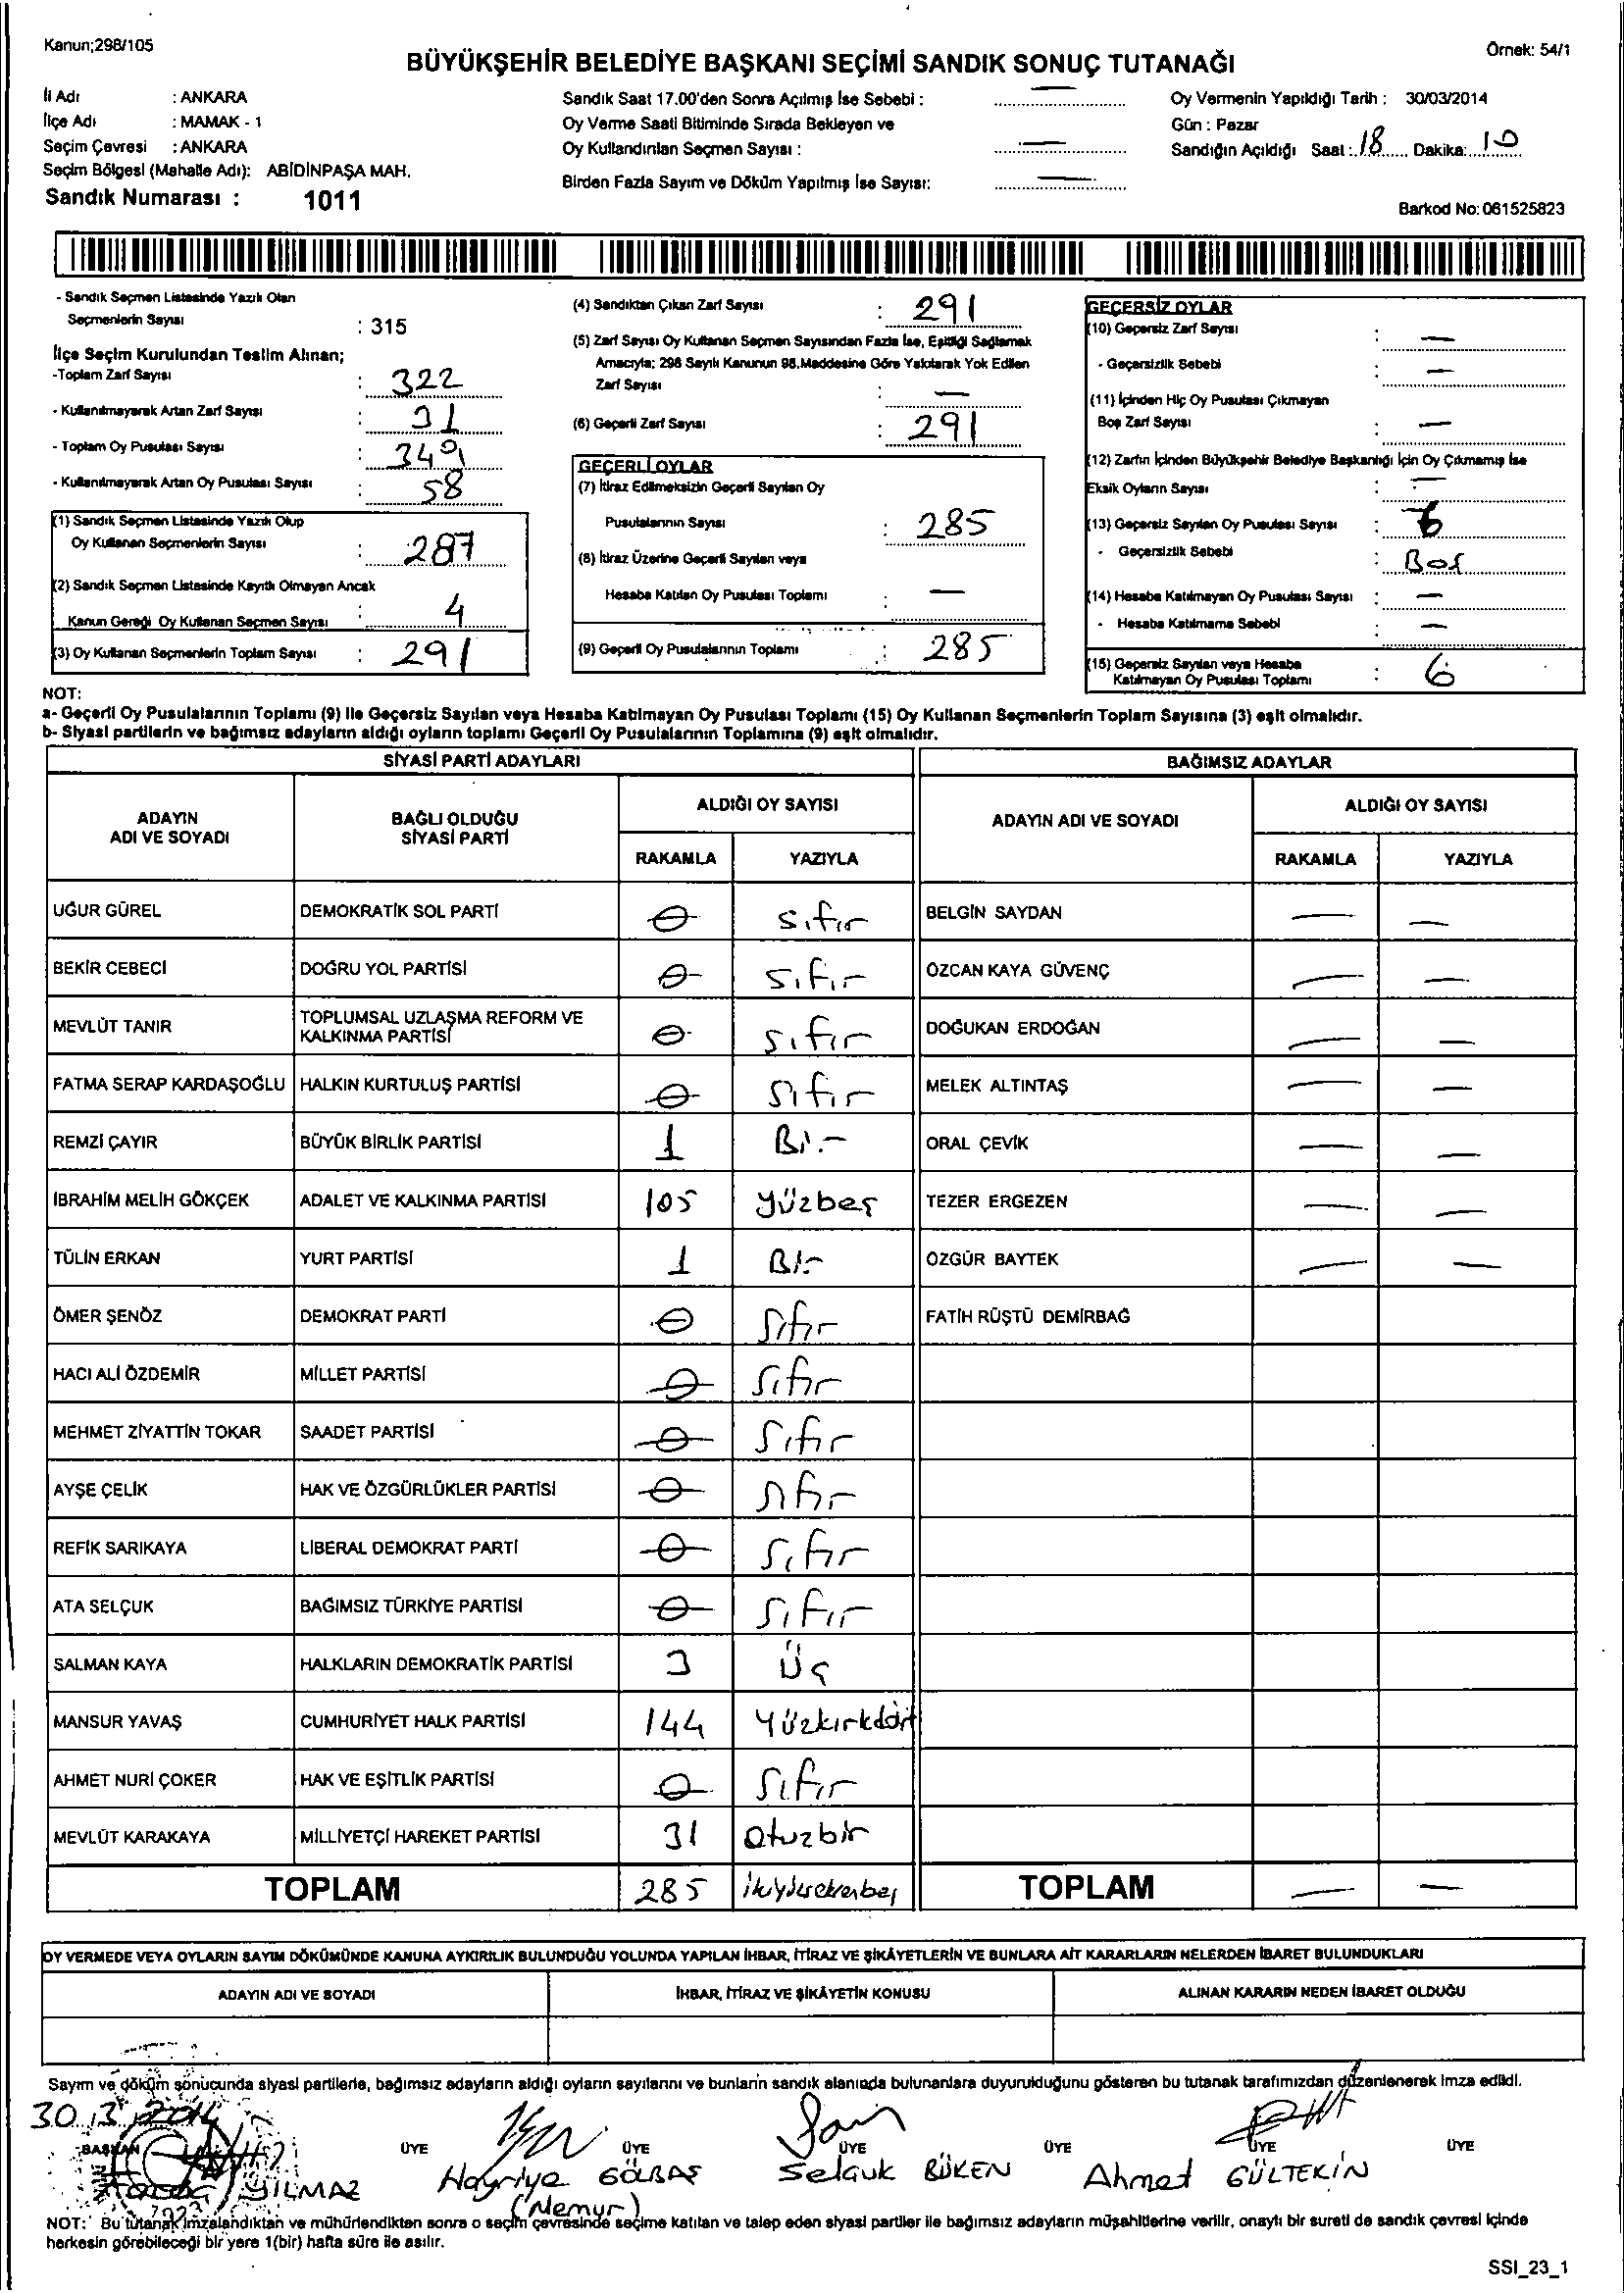 Kanun;298/105
Örnek: 54/1
BÜYÜKŞEHİR BELEDİYE BAŞKANI SEÇİMİ SANDIK SONUÇ TUTANAĞI
İl Adı : ANKARA
İlçe Adı : MAMAK - 1
Seçim Çevresi : ANKARA
Seçim Bölgesi (Mahalle Adı): ABİDİNPAŞA MAH.
Sandık Numarası : 1011
Sandık Saat 17.00'den Sonra Açılmış İse Sebebi : —
Oy Verme Saati Bitiminde Sırada Bekleyen ve
Oy Kullandırılan Seçmen Sayısı : —
Birden Fazla Sayım ve Döküm Yapılmış İse Sayısı: —
Oy Vermenin Yapıldığı Tarih : 30/03/2014
Gün : Pazar
Sandığın Açıldığı Saat : 18 Dakika: 10
Barkod No: 061525823
- Sandık Seçmen Listesinde Yazılı Olan
Seçmenlerin Sayısı : 315
İlçe Seçim Kurulundan Teslim Alınan;
-Toplam Zarf Sayısı : 322
- Kullanılmayarak Artan Zarf Sayısı : 31
- Toplam Oy Pusulası Sayısı : 349
- Kullanılmayarak Artan Oy Pusulası Sayısı : 58
(1) Sandık Seçmen Listesinde Yazılı Olup
Oy Kullanan Seçmenlerin Sayısı : 287
(2) Sandık Seçmen Listesinde Kayıtlı Olmayan Ancak
Kanun Gereği Oy Kullanan Seçmen Sayısı : 4
(3) Oy Kullanan Seçmenlerin Toplam Sayısı : 291
(4) Sandıktan Çıkan Zarf Sayısı : 291
(5) Zarf Sayısı Oy Kullanan Seçmen Sayısından Fazla İse, Eşitliği Sağlamak
Amacıyla; 298 Sayılı Kanunun 98.Maddesine Göre Yakılarak Yok Edilen
Zarf Sayısı : —
(6) Geçerli Zarf Sayısı : 291
GEÇERLİ OYLAR
(7) İtiraz Edilmeksizin Geçerli Sayılan Oy
Pusulalarının Sayısı : 285
(8) İtiraz Üzerine Geçerli Sayılan veya
Hesaba Katılan Oy Pusulası Toplamı : —
(9) Geçerli Oy Pusulalarının Toplamı : 285
GEÇERSİZ OYLAR
(10) Geçersiz Zarf Sayısı : —
- Geçersizlik Sebebi : —
(11) İçinden Hiç Oy Pusulası Çıkmayan
Boş Zarf Sayısı : —
(12) Zarfın İçinden Büyükşehir Belediye Başkanlığı İçin Oy Çıkmamış İse
Eksik Oyların Sayısı : —
(13) Geçersiz Sayılan Oy Pusulası Sayısı : 6
- Geçersizlik Sebebi : Boş
(14) Hesaba Katılmayan Oy Pusulası Sayısı : —
- Hesaba Katılmama Sebebi : —
(15) Geçersiz Sayılan veya Hesaba
Katılmayan Oy Pusulası Toplamı : 6
NOT:
a- Geçerli Oy Pusulalarının Toplamı (9) ile Geçersiz Sayılan veya Hesaba Katılmayan Oy Pusulası Toplamı (15) Oy Kullanan Seçmenlerin Toplam Sayısına (3) eşit olmalıdır.
b- Siyasi partilerin ve bağımsız adayların aldığı oyların toplamı Geçerli Oy Pusulalarının Toplamına (9) eşit olmalıdır.
SİYASİ PARTİ ADAYLARI
BAĞIMSIZ ADAYLAR
ADAYIN ADI VE SOYADI
BAĞLI OLDUĞU SİYASİ PARTİ
ALDIĞI OY SAYISI
RAKAMLA YAZIYLA
ADAYIN ADI VE SOYADI
ALDIĞI OY SAYISI
RAKAMLA YAZIYLA
UĞUR GÜREL DEMOKRATİK SOL PARTİ 0 sıfır BELGİN SAYDAN — —
BEKİR CEBECİ DOĞRU YOL PARTİSİ 0 sıfır ÖZCAN KAYA GÜVENÇ — —
MEVLÜT TANIR TOPLUMSAL UZLAŞMA REFORM VE KALKINMA PARTİSİ 0 sıfır DOĞUKAN ERDOĞAN — —
FATMA SERAP KARDAŞOĞLU HALKIN KURTULUŞ PARTİSİ 0 sıfır MELEK ALTINTAŞ — —
REMZİ ÇAYIR BÜYÜK BİRLİK PARTİSİ 1 Bir ORAL ÇEVİK — —
İBRAHİM MELİH GÖKÇEK ADALET VE KALKINMA PARTİSİ 105 yüzbeş TEZER ERGEZEN — —
TÜLİN ERKAN YURT PARTİSİ 1 Bir ÖZGÜR BAYTEK — —
ÖMER ŞENÖZ DEMOKRAT PARTİ 0 sıfır FATİH RÜŞTÜ DEMİRBAĞ
HACI ALİ ÖZDEMİR MİLLET PARTİSİ 0 sıfır
MEHMET ZİYATTİN TOKAR SAADET PARTİSİ 0 sıfır
AYŞE ÇELİK HAK VE ÖZGÜRLÜKLER PARTİSİ 0 sıfır
REFİK SARIKAYA LİBERAL DEMOKRAT PARTİ 0 sıfır
ATA SELÇUK BAĞIMSIZ TÜRKİYE PARTİSİ 0 sıfır
SALMAN KAYA HALKLARIN DEMOKRATİK PARTİSİ 3 Üç
MANSUR YAVAŞ CUMHURİYET HALK PARTİSİ 144 Yüzkırkdört
AHMET NURİ ÇOKER HAK VE EŞİTLİK PARTİSİ 0 sıfır
MEVLÜT KARAKAYA MİLLİYETÇİ HAREKET PARTİSİ 31 otuzbir
TOPLAM 285 ikiyüzseksenbeş TOPLAM — —
OY VERMEDE VEYA OYLARIN SAYIM DÖKÜMÜNDE KANUNA AYKIRILIK BULUNDUĞU YOLUNDA YAPILAN İHBAR, İTİRAZ VE ŞİKÂYETLERİN VE BUNLARA AİT KARARLARIN NELERDEN İBARET BULUNDUKLARI
ADAYIN ADI VE SOYADI İHBAR, İTİRAZ VE ŞİKÂYETİN KONUSU ALINAN KARARIN NEDEN İBARET OLDUĞU
Sayım ve döküm sonucunda siyasi partilerle, bağımsız adayların aldığı oyların sayılarını ve bunların sandık alanında bulunanlara duyurulduğunu gösteren bu tutanak tarafımızdan düzenlenerek imza edildi.
30.3.2014
BAŞKAN ÜYE ÜYE ÜYE ÜYE ÜYE ÜYE
YILMAZ Hayriye GÖLBAŞ Selçuk BÜKEN Ahmet GÜLTEKİN
(Memur)
NOT: Bu tutanak imzalandıktan ve mühürlendikten sonra o seçim çevresinde seçime katılan ve talep eden siyasi partiler ile bağımsız adayların müşahitlerine verilir, onaylı bir sureti de sandık çevresi içinde
herkesin görebileceği bir yere 1(bir) hafta süre ile asılır.
SSI_23_1